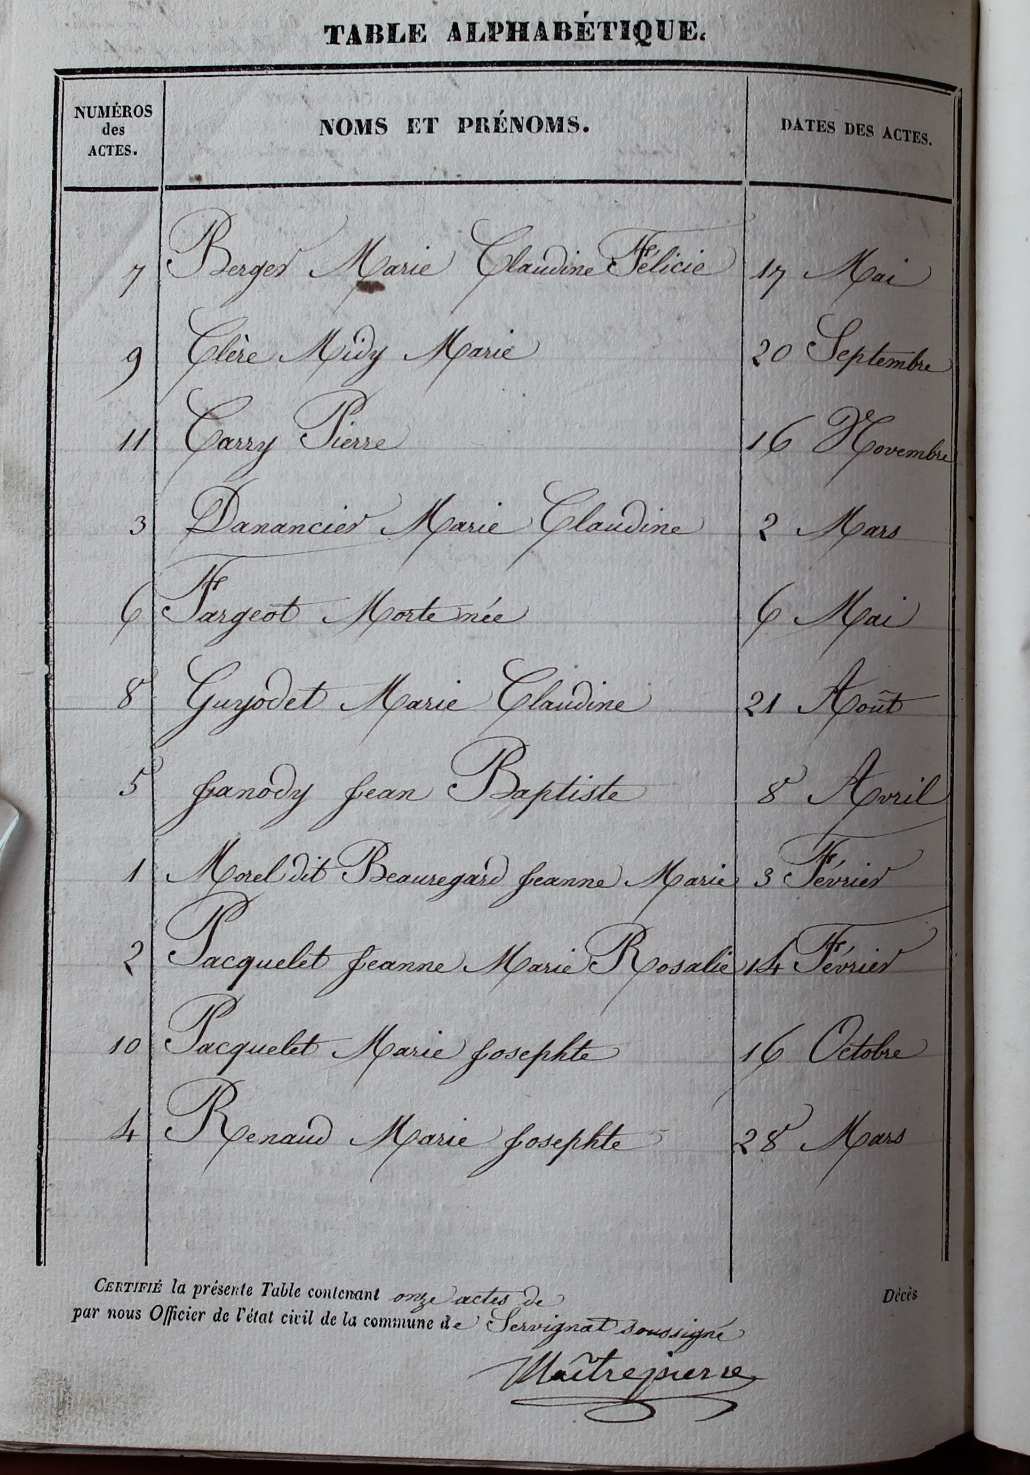 TABLE ALPHABÉTIQUE.
NUMÉROS des ACTES. NOMS ET PRÉNOMS. DATES DES ACTES.
7 Berger Marie Claudine Félicie 17 Mai
9 Clère Midy Marie 20 Septembre
11 Carry Pierre 16 Novembre
3 Danancier Marie Claudine 2 Mars
6 Fargeot Morte née 6 Mai
8 Guyodet Marie Claudine 21 Août
5 Janody Jean Baptiste 8 Avril
1 Morel dit Beauregard Jeanne Marie 3 Février
2 Pacquelet Jeanne Marie Rosalie 14 Février
10 Pacquelet Marie Josephte 16 Octobre
4 Renaud Marie Josephte 28 Mars
CERTIFIÉ la présente Table contenant onze actes de Décès
par nous Officier de l'état civil de la commune de Servignat soussigné
Maîtrepierre